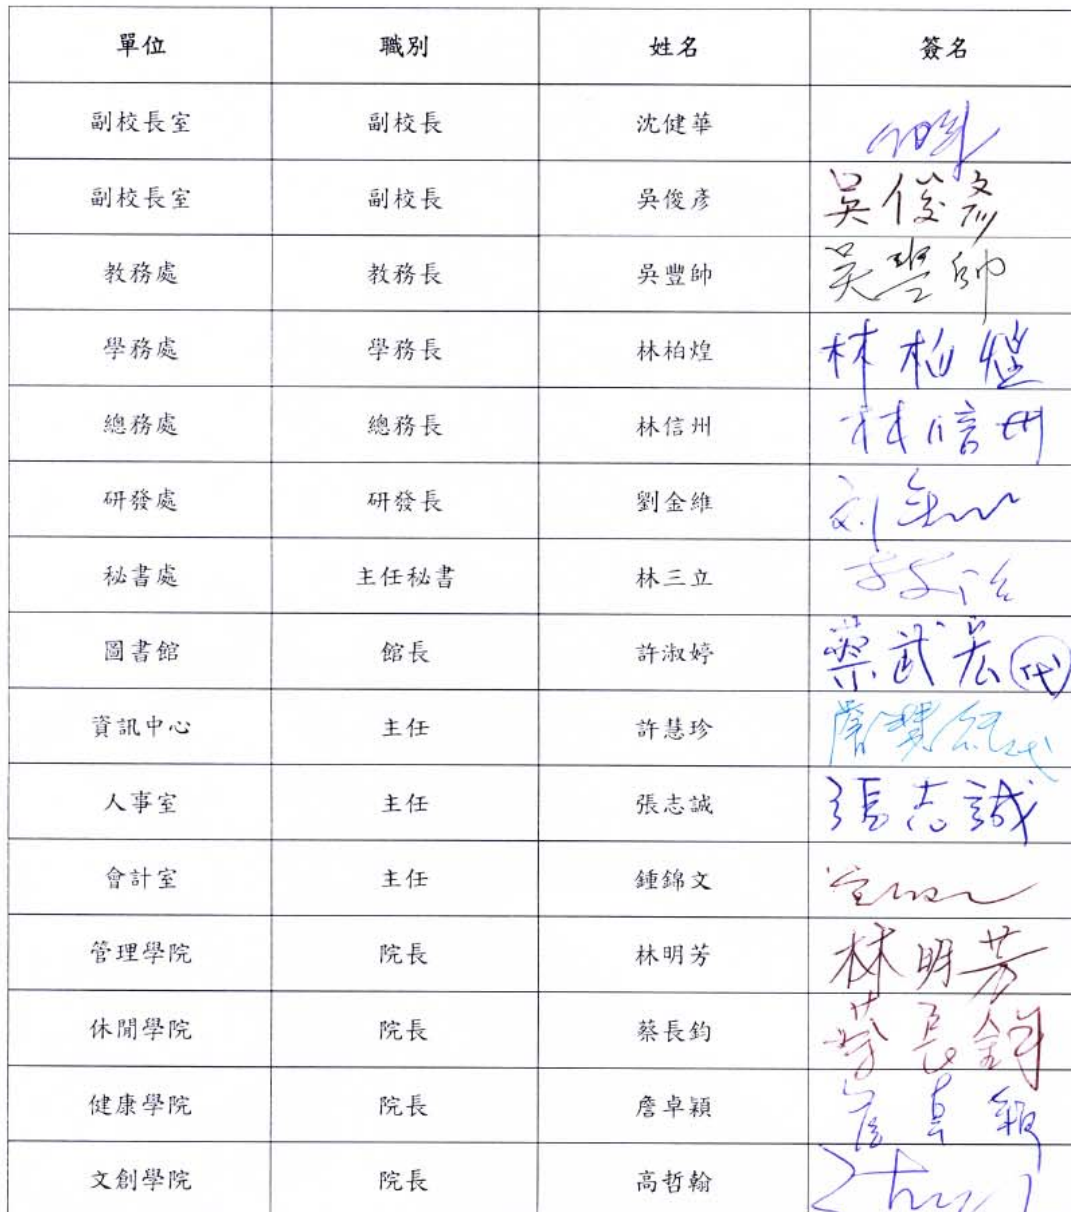 單位 職別 姓名 簽名
副校長室 副校長 沈健華
副校長室 副校長 吳俊彥 吳俊彥
教務處 教務長 吳豐帥 吳豐帥
學務處 學務長 林柏煌 林柏煌
總務處 總務長 林信州 林信州
研發處 研發長 劉金維
秘書處 主任秘書 林三立
圖書館 館長 許淑婷 蔡武宏代
資訊中心 主任 許慧珍
人事室 主任 張志誠 張志誠
會計室 主任 鍾錦文
管理學院 院長 林明芳 林明芳
休閒學院 院長 蔡長鈞 蔡長鈞
健康學院 院長 詹卓穎 詹卓穎
文創學院 院長 高哲翰